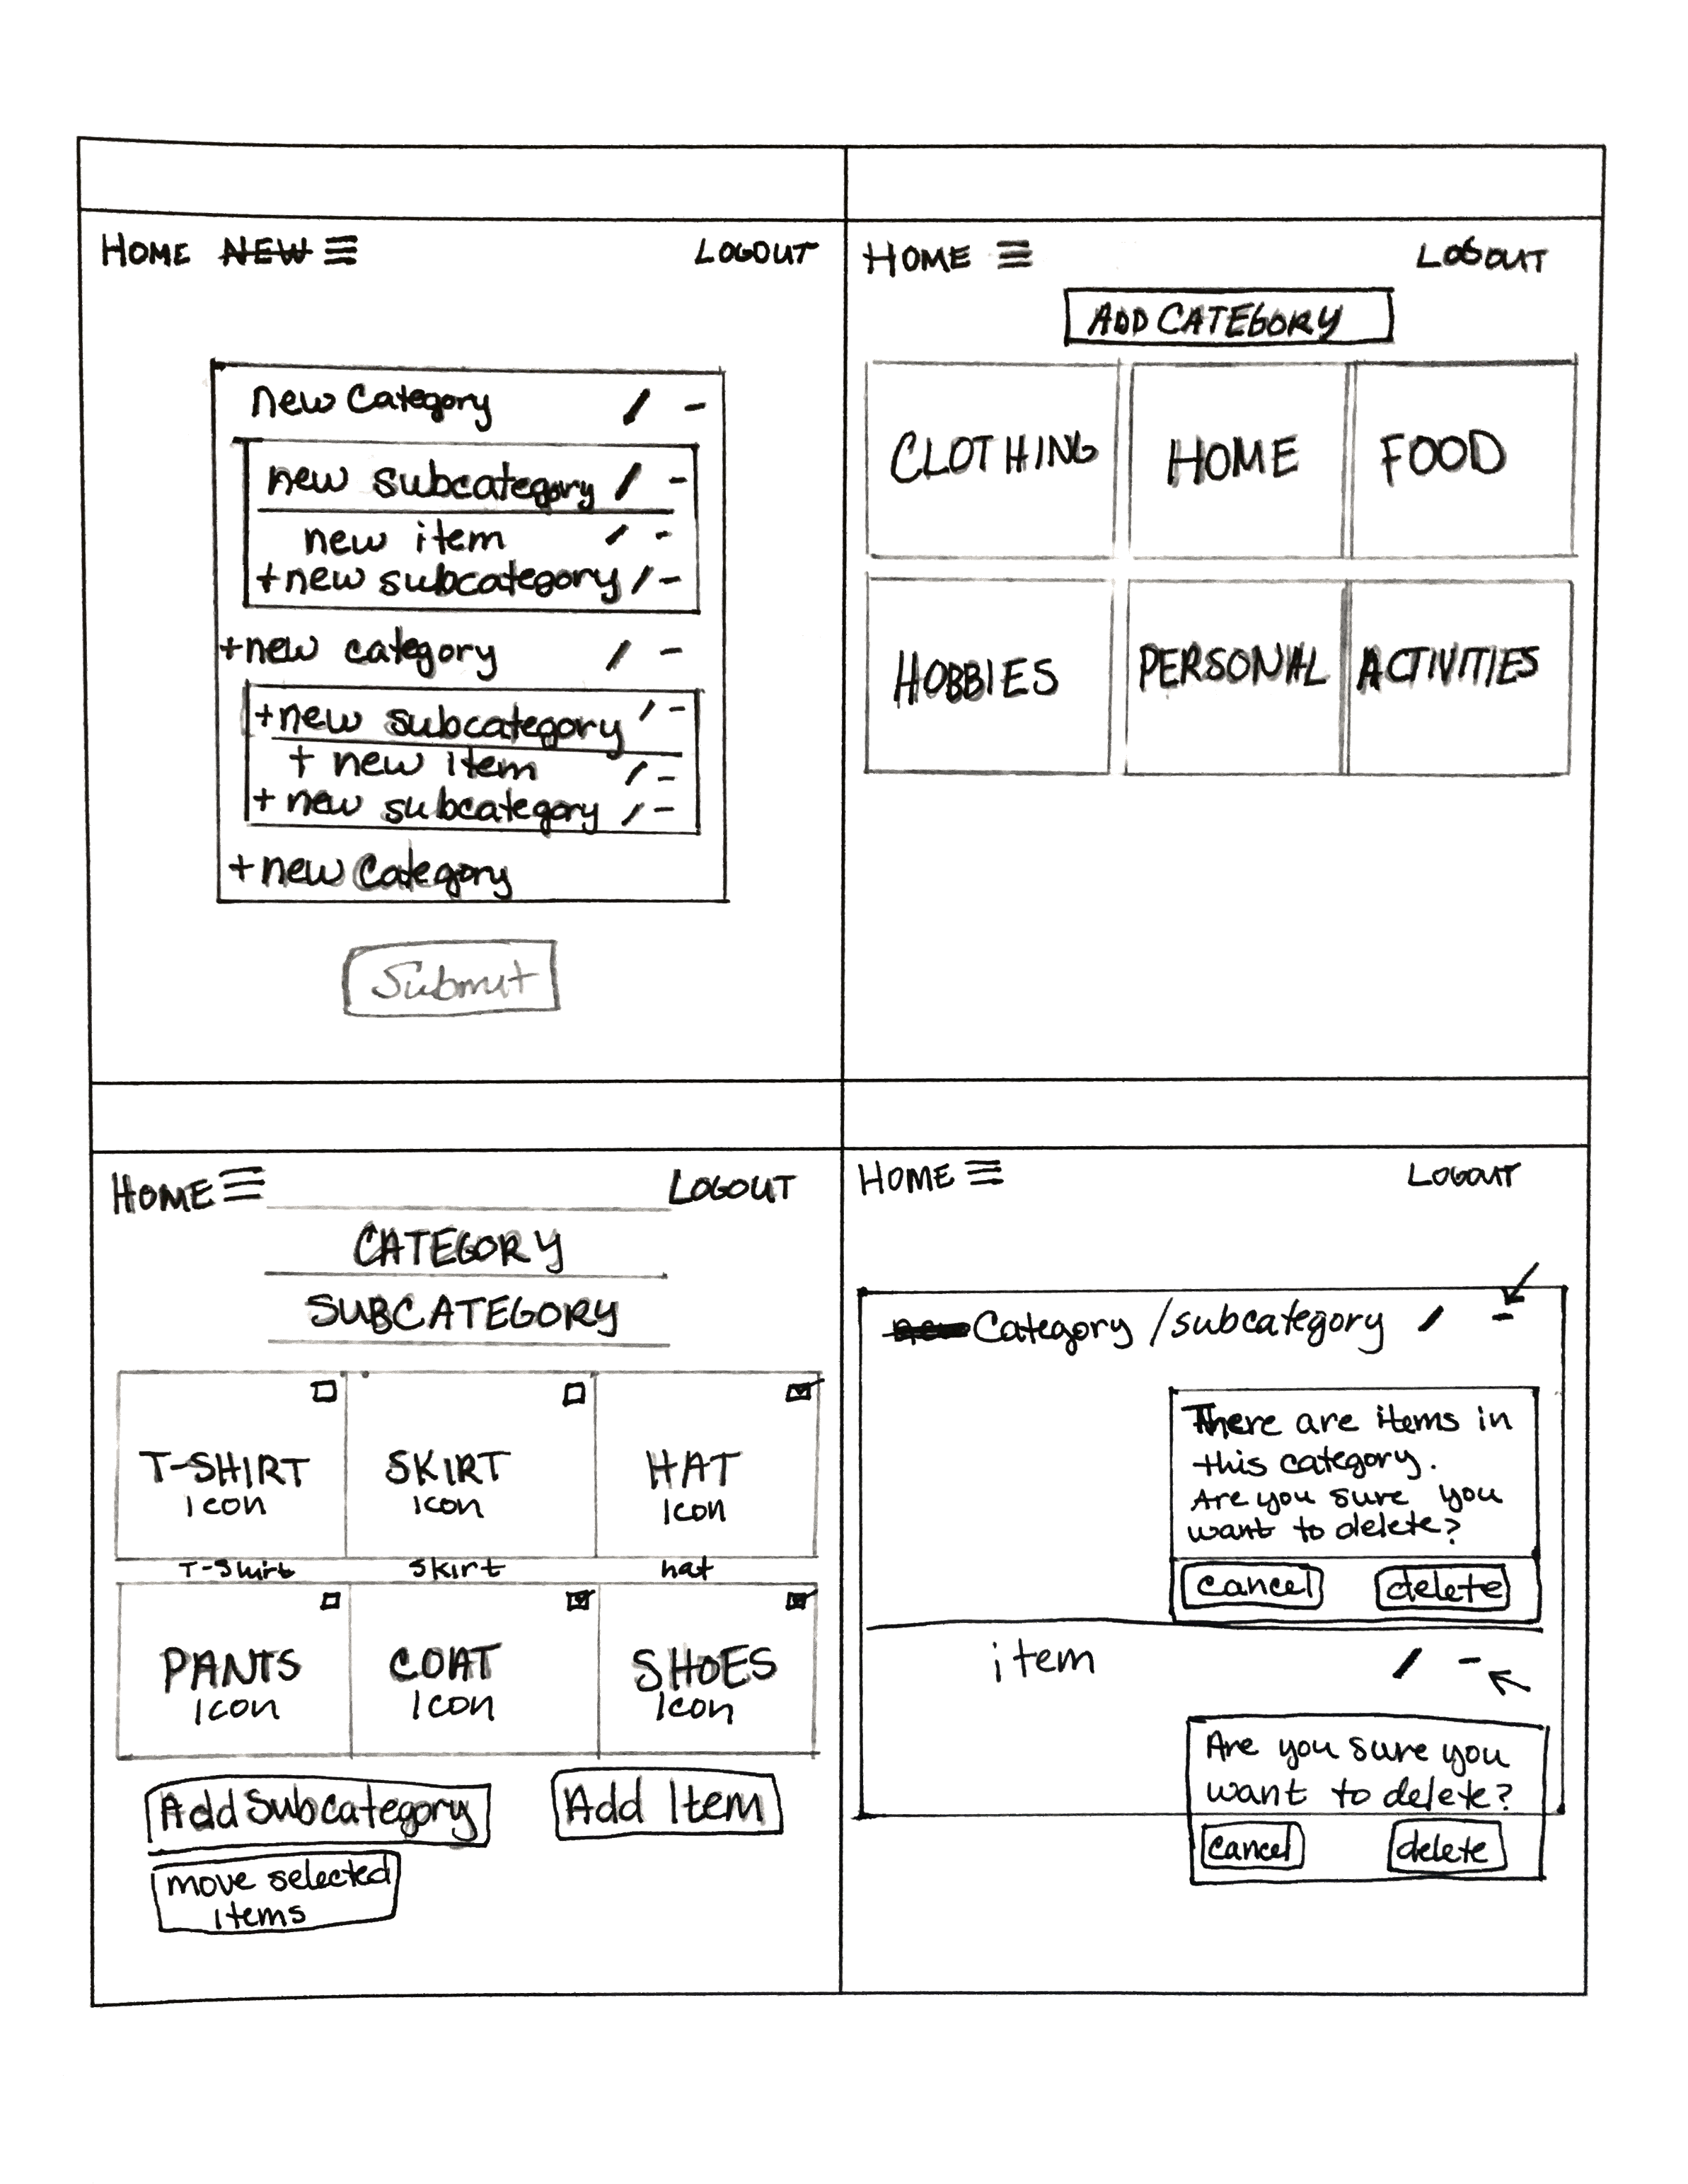 HOME NEW LOGOUT
new Category / -
new subcategory / -
new item / -
+new subcategory / -
+new category / -
+new subcategory / -
+ new item / -
+ new subcategory / -
+new Category
Submit
HOME LOGOUT
ADD CATEGORY
CLOTHING HOME FOOD
HOBBIES PERSONAL ACTIVITIES
HOME LOGOUT
CATEGORY
SUBCATEGORY
T-SHIRT SKIRT HAT
Icon Icon Icon
T-Shirt skirt hat
PANTS COAT SHOES
Icon Icon Icon
Add Subcategory Add Item
move selected
items
HOME LOGOUT
Category / subcategory / -
There are items in
this category.
Are you sure you
want to delete?
cancel delete
item / -
Are you sure you
want to delete?
cancel delete